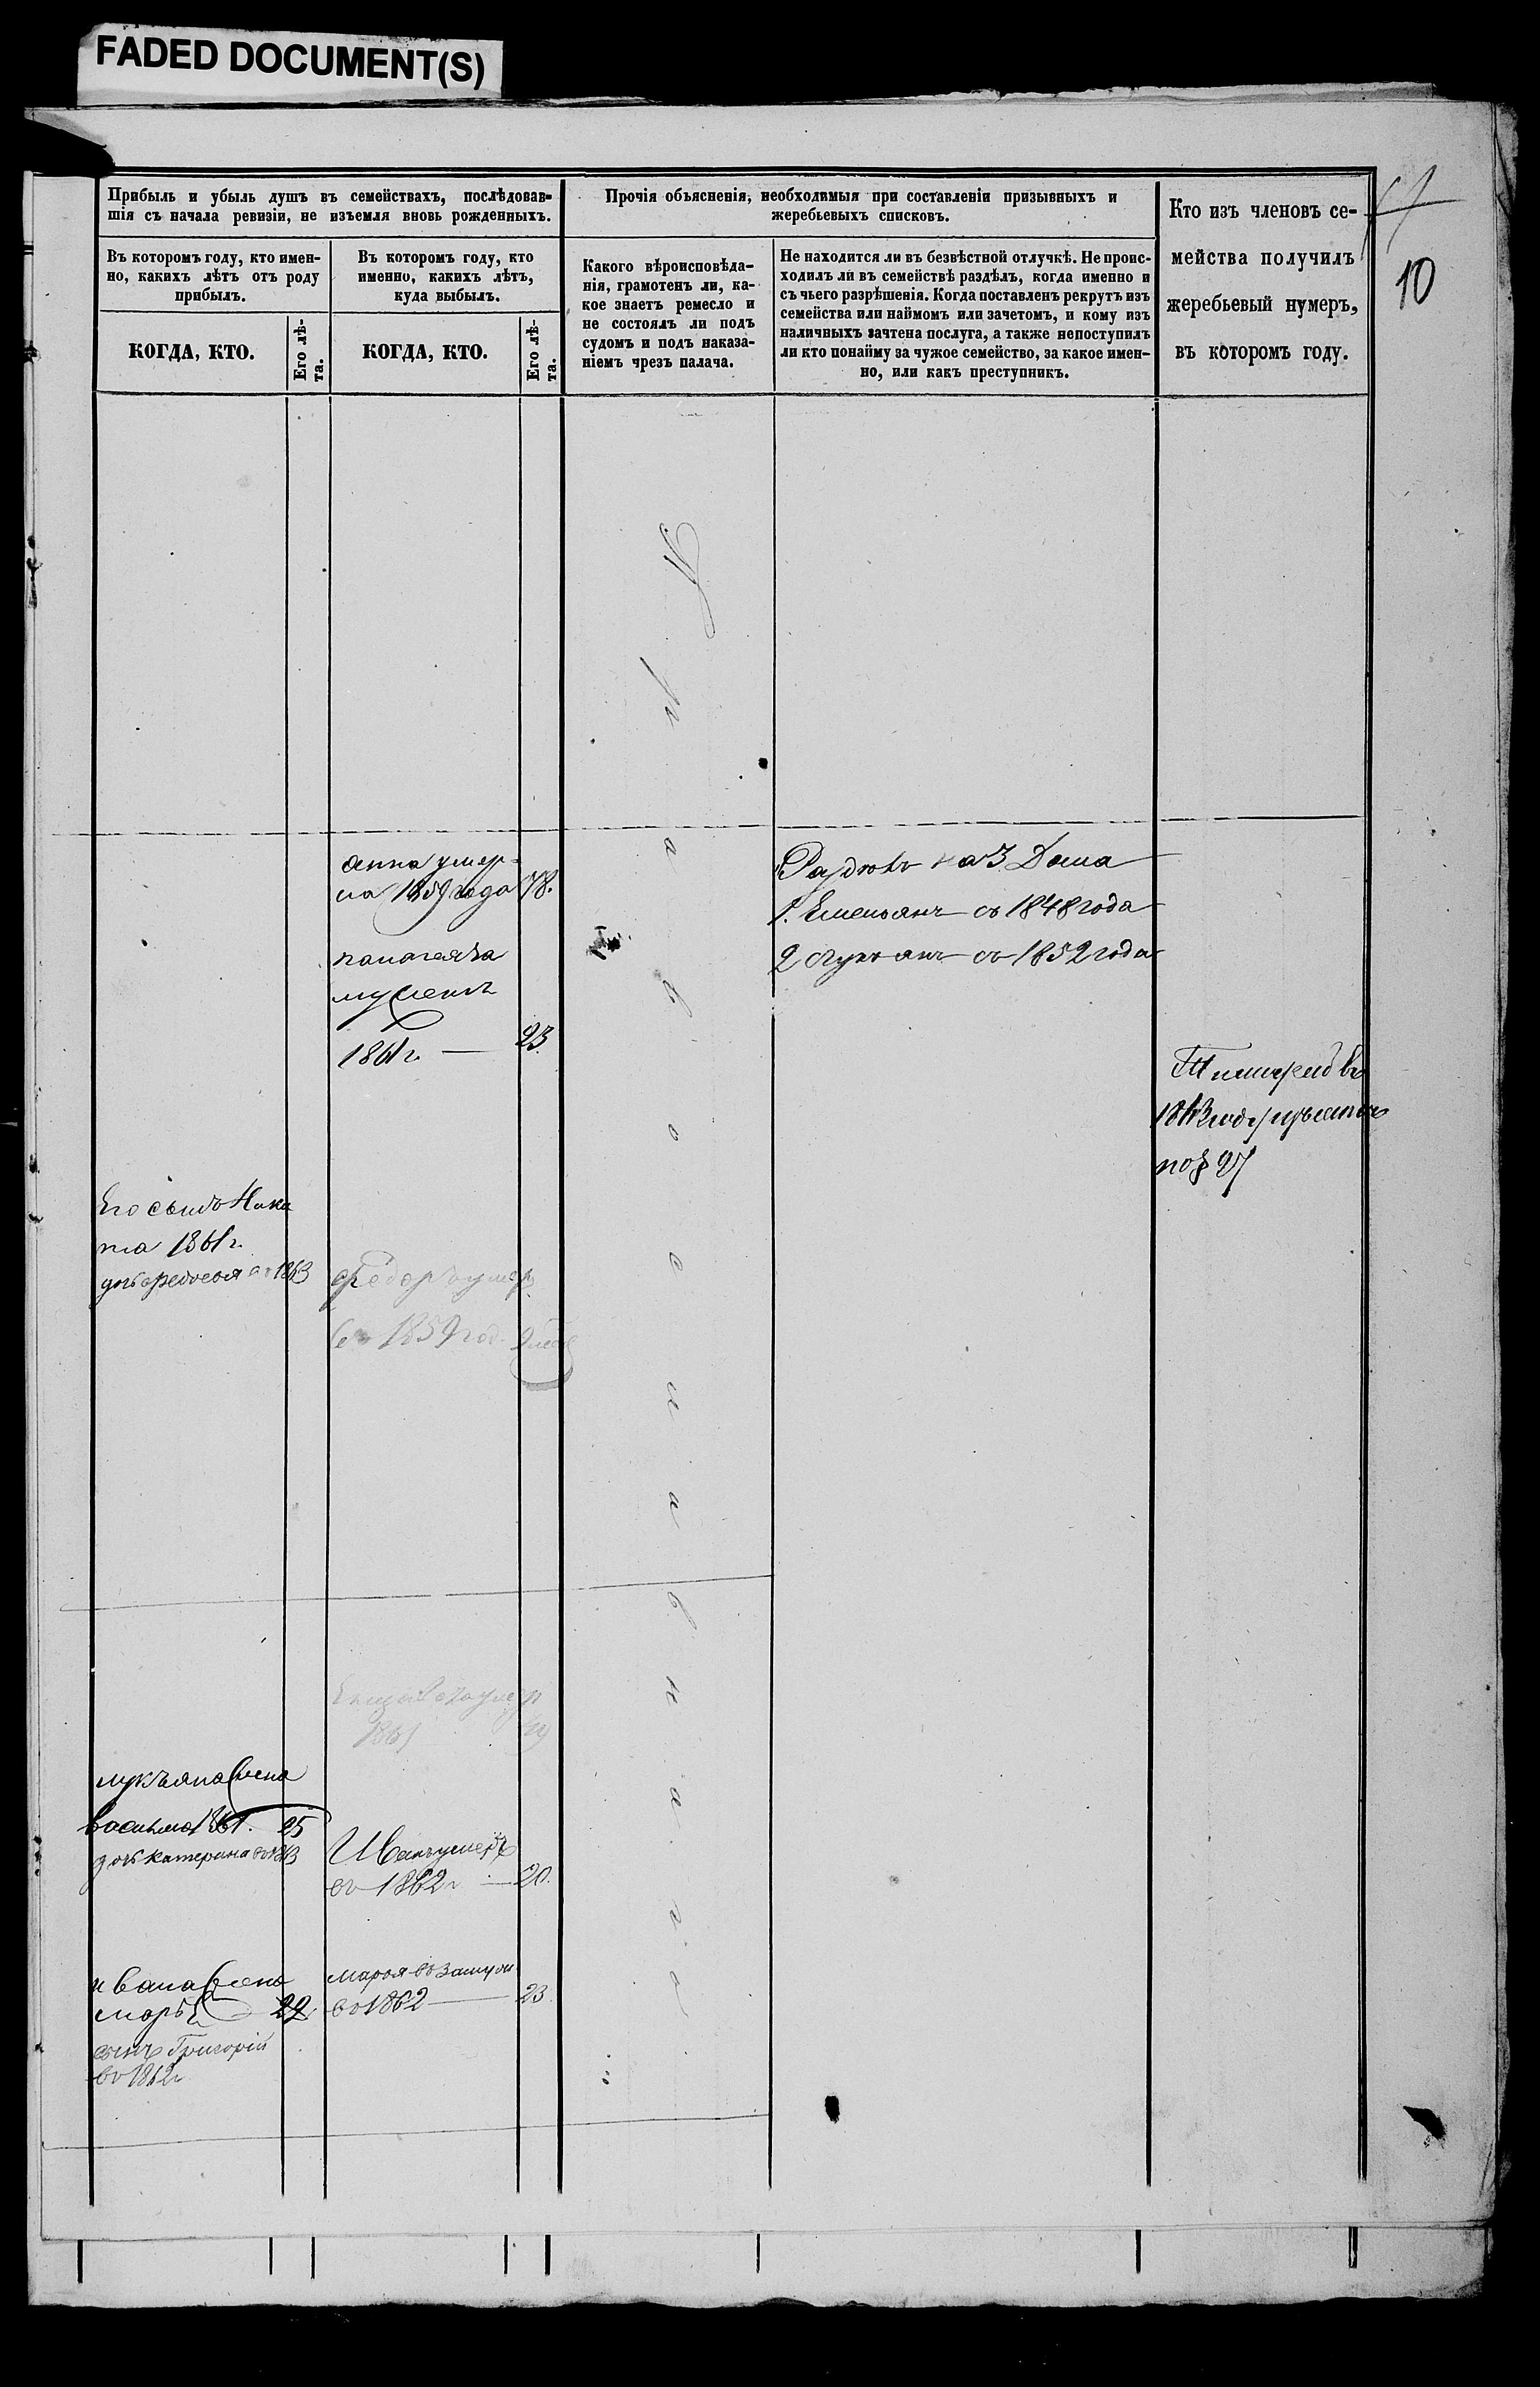 FADED DOCUMENT(S)
Прибыль и убыль душъ въ семействахъ, послѣдовав-
шія съ начала ревизіи, не изъемля вновь рожденныхъ.
Въ которомъ году, кто имен-
но, какихъ лѣтъ отъ роду
прибылъ.
КОГДА, КТО.
Его лѣ-
та.
Въ которомъ году, кто
именно, какихъ лѣтъ,
куда выбылъ.
КОГДА, КТО.
Его лѣ-
та.
Прочія объясненія, необходимыя при составленіи призывныхъ и
жеребьевыхъ списковъ.
Какого вѣроисповѣда-
нія, грамотенъ ли, ка-
кое знаетъ ремесло и
не состоялъ ли подъ
судомъ и подъ наказа-
ніемъ чрезъ палача.
Не находится ли въ безвѣстной отлучкѣ. Не проис-
ходилъ ли въ семействѣ раздѣлъ, когда именно и
съ чьего разрѣшенія. Когда поставленъ рекрутъ изъ
семейства или наймомъ или зачетомъ, и кому изъ
наличныхъ зачтена послуга, а также непоступилъ
ли кто понайму за чужое семейство, за какое имен-
но, или какъ преступникъ.
Кто изъ членовъ се-
мейства получилъ
жеребьевый нумеръ,
въ которомъ году.
17
10
анна умер-
ла 1859 года 78.
палагея за
мужемъ
1861 г. — 23.
на 3 Дома
1. Емельянъ съ 1848 года
2 Лукьянъ съ 1852 года
Тимофей въ
по § 27
Его сынъ Ники
та 1861 г.
дочь федосья 1863
Федоръ умер
въ 1859 год.
умер
1861
лукьяна жена
василиса 1861. 25
дочь катерина 1863
Иванъ умеръ
въ 1862 г — 20.
ивана жена
марья 22
сынъ Григорій
въ 1862 г
марья въ замуж
въ 1862 — 23